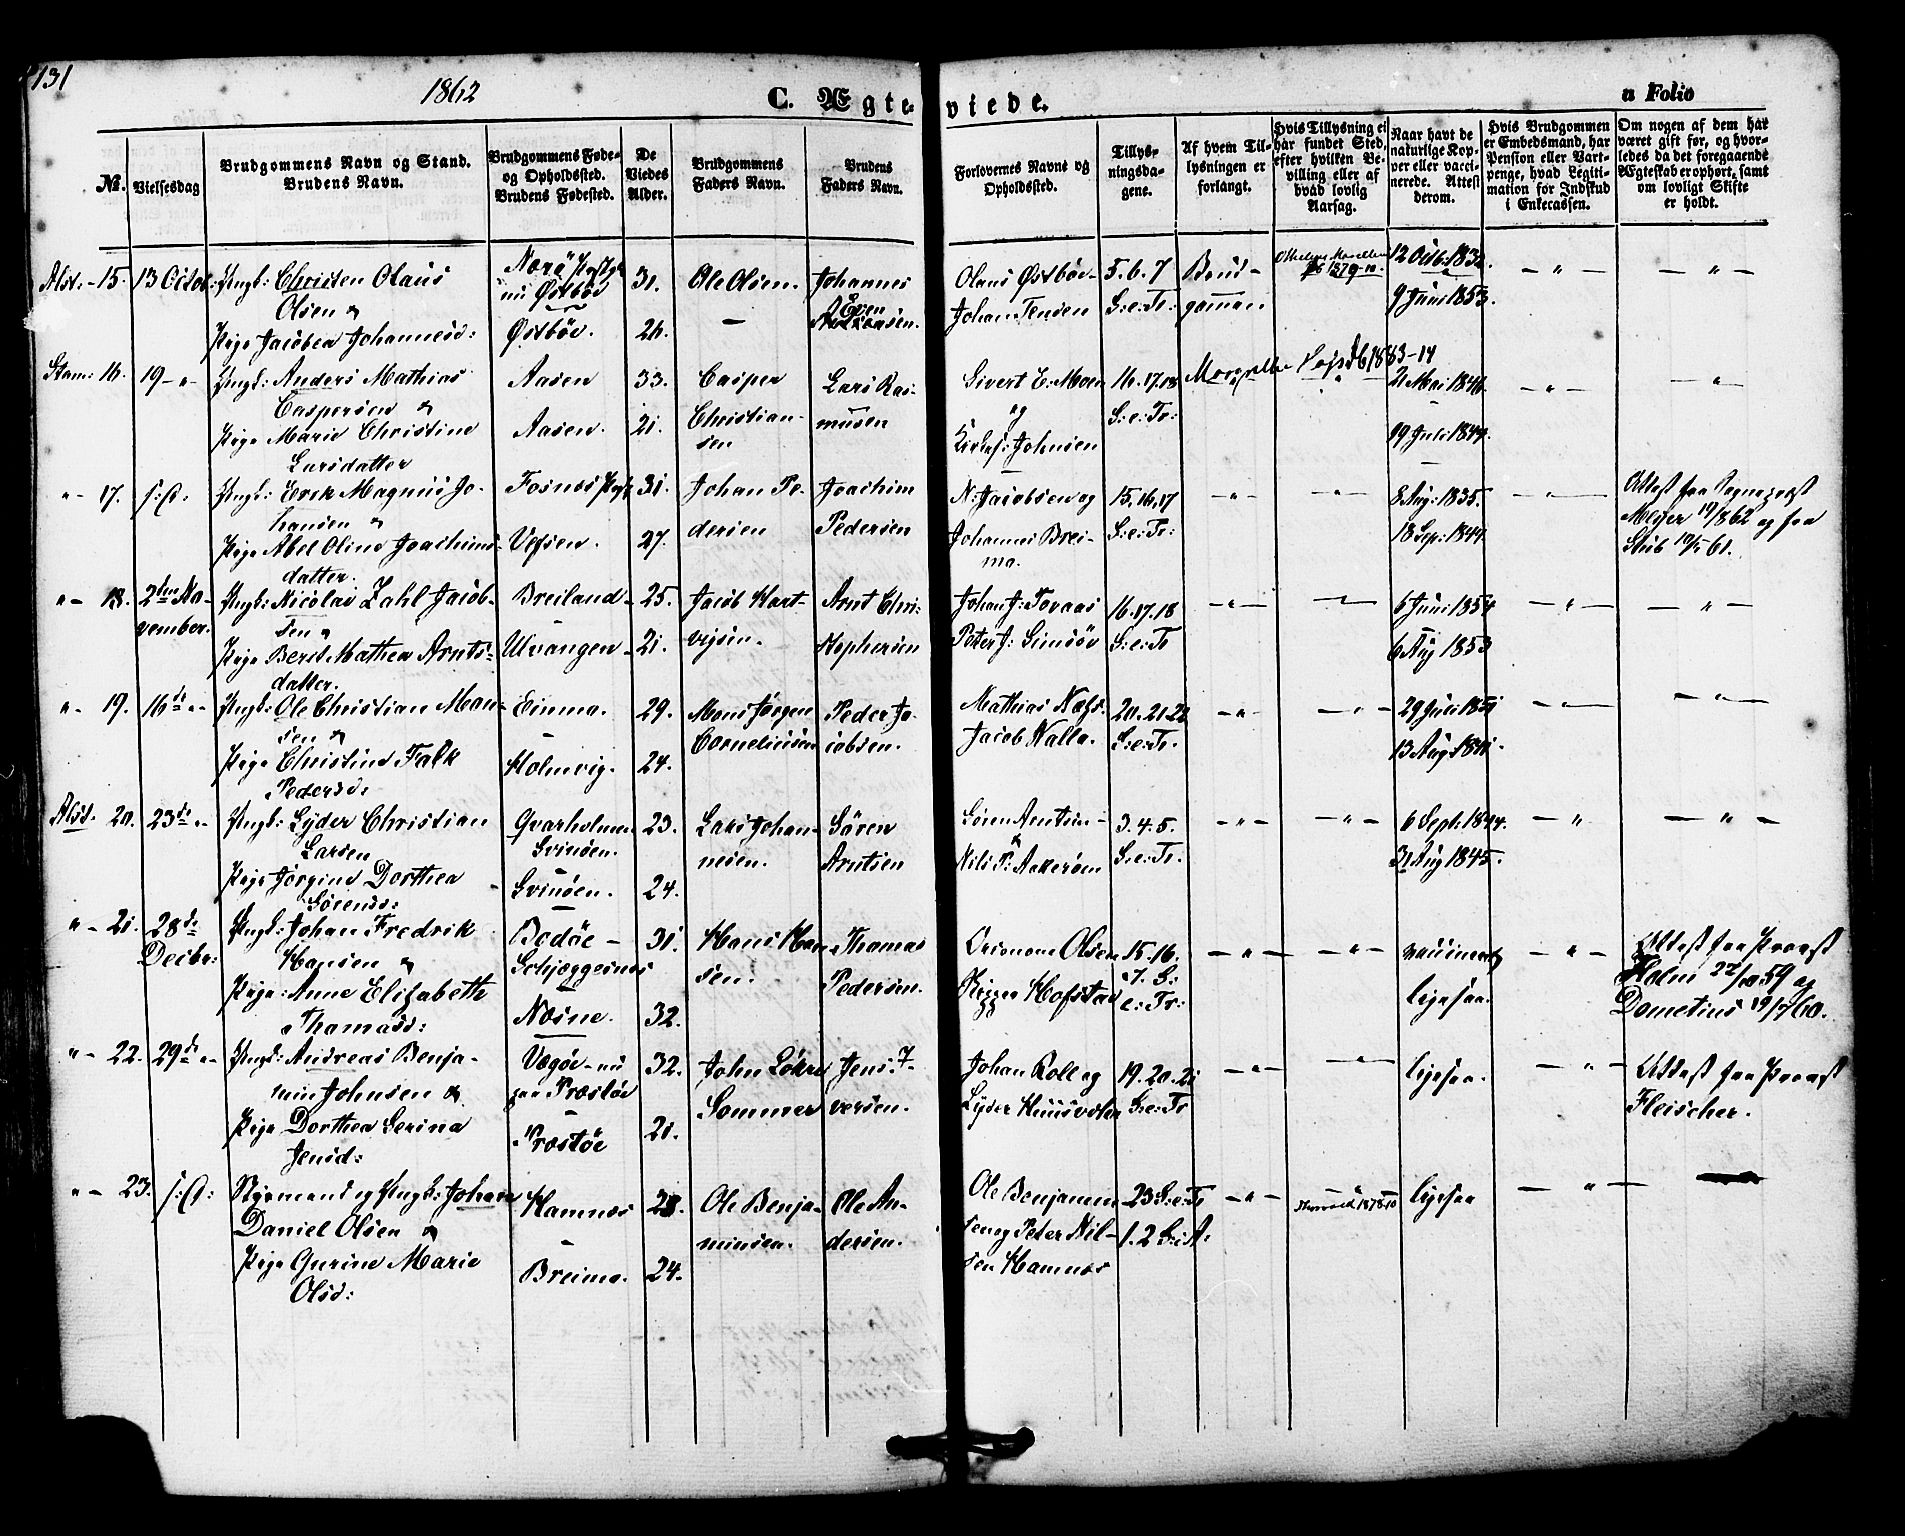 131
1862
C. Ægteviede.
a Folio
№.
Vielsesdag
Brudgommens Navn og Stand.
Brudens Navn.
Brudgommens Føde-
og Opholdssted.
Brudens Fødested.
De
Viedes
Alder.
Brudgommens
Faders Navn.
Brudens
Faders Navn.
Forlovernes Navne og
Opholdssted.
Tillys-
ningsda-
gene.
Af hvem Til-
lysningen er
forlangt.
Hvis Tillysning ei
har fundet Sted,
efter hvilken Be-
villing eller af
hvad lovlig
Aarsag.
Naar havt de
naturlige Kop-
per eller vacci-
nerede. Attest
derom.
Hvis Brudgommen
er Embedsmand, har
Pension eller Vart-
penge, hvad Legiti-
mation for Indskud
i Enkecassen.
Om nogen af dem har
været gift før, og hvor-
ledes da det foregaaende
Ægteskab er ophørt, samt
om lovligt Skifte
er holdt.
Alst: - 15. 13 Octob: Ungk: Christen Olaus
Olsen &
Pige Jacobea Johannesd:
Nærø Præstgj
nu Østbøe
Østbøe.
31.
26.
Ole Olsen.
—
Johannes
Olaus Østbøe
Johan Jensen
5. 6. 7
S: e: Tr:
Brud-
goman
12 Octb: 1832.
9 Juni 1853.
— " —
— " —
Stam: 16. 19 - " - Ungk: Anders Mathias
Caspersen &
Pige Marie Christine
Larsdatter
Aasen
Aasen.
33.
21.
Casper
Christian-
sen
Lars Ras-
musen
Sivert E. Moen
og
Johnsen
16. 17. 18
S: e: Tr:
21 Mai 1846
19 Juli 1849.
— " —
— " —
" - 17. s: D: Ungk: Erik Magnus Jo-
hansen &
Pige Abel Oline Joachims-
datter.
Fosnæs Præstgj
Vefsen.
31.
27.
Johan Pe-
dersen
Joachim
Pedersen
N: Jacobsen og
Johannes Brei-
mo.
15. 16. 17
S: e: Tr:
— " —
— " —
8 Aug: 1835.
18 Sep: 1844
— " —
Attest fra Sogneprest
Meyer 19/8 62 og fra
Stub 10/5 61.
" - 18. 2den No-
vember.
Ungk: Nicolai Zahl Jacob-
sen &
Pige Berit Mathea Arnts-
datter.
Breiland
Ulvangen
25.
21.
Jacob Hart-
vigsen.
Arnt Chri-
stophersen
Johan J: Toraas
Peter J: Simsøe
16. 17. 18
S: e: Tr
— " —
— " —
6 Juni 1854
6 Aug 1853
— " —
— " —
" - 19. 16de " - Ungk: Ole Christian Mon-
sen &
Pige Christine Falk
Pedersd:
Einmo.
Holmvig.
29.
24.
Mons Jørgen
Corneliussen
Peder Ja-
cobsen.
Mathias Næss.
Jacob Kalla.
20. 21. 22
S: e: Tr.
— " —
— " —
29 Juli 1851
13 Aug: 1841.
— " —
— " —
Alst. 20. 23de " - Ungk: Lyder Christian
Larsen
Pige Jørgine Dorthea
Sørensd:
Qvarholmen
Svinøen.
Svinøen.
23.
24.
Lars Johan-
nesen.
Søren
Arntsen
Søren Arntsen
&
Nils P: Aakerøen
3. 4. 5.
S: e: Tr.
— " —
— " —
6 Sept: 1844.
31 Aug 1845.
— " —
— " —
" - 21. 28de
Decbr:
Ungk: Johan Fredrik
Hansen &
Pige: Anne Elizabeth
Thomasd:
Bodøe -
Schjeggesnes
Næsne.
31.
32.
Hans Han-
sen.
Thomas
Pedersen.
Olsen
Hofstad
15. 16.
17. S:
e: Tr:
— " —
— " —
vaccinerede
ligesaa.
— " —
Attest fra Provst
Holm 22/10 59 og
Dometius 19/9 60.
" - 22. 29de " - Ungk: Andreas Benja-
min Johnsen &
Pige Dorthea Serina
Jensd:
Vegøe - nu
paa Præstøe
Præstøe
32.
21.
John Løkre
Sommer
Jens I-
versen.
Johan Roll og
Lyder Huusvolen
19. 20. 21
S: e: Tr
— " —
— " —
ligesaa.
— " —
Attest fra Provst
Fleischer.
" - 23. s: D: Styrmand og Ungk: Johan
Daniel Olsen &
Pige Gurine Marie
Olsd:
Hamnæs
Breimo.
28.
24.
Ole Benja-
minsen.
Ole An-
dersen.
Ole Benjamin-
sen og Peter Nil-
sen Hamnæs
23 S: e: Tr
1. 2 S: i A:
— " —
ligesaa
— " —